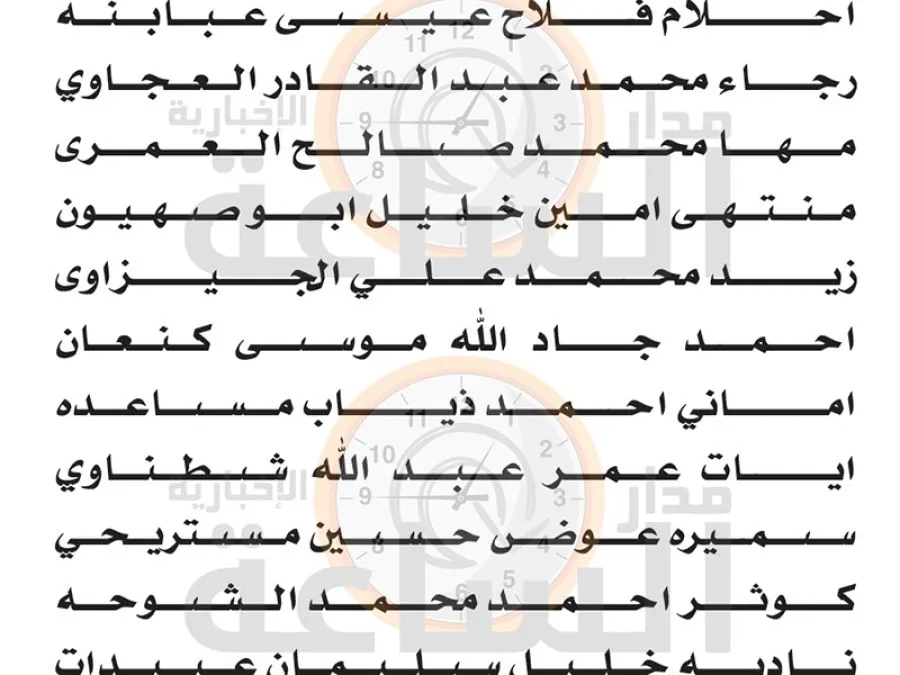 احلام فلاح عيسى عبابنه
رجاء محمد عبد القادر العجاوي
مها محمد صالح العمرى
منتهى امين خليل ابو صهيون
زيد محمد علي الجيزاوى
احمد جاد الله موسى كنعان
اماني احمد ذياب مساعده
ايات عمر عبد الله شطناوي
سميره عوض حسين مستريحي
كوثر احمد محمد الشوحه
ناديه خليل سليمان عبيدات
مدار الساعة الإخبارية
مدار الساعة الإخبارية